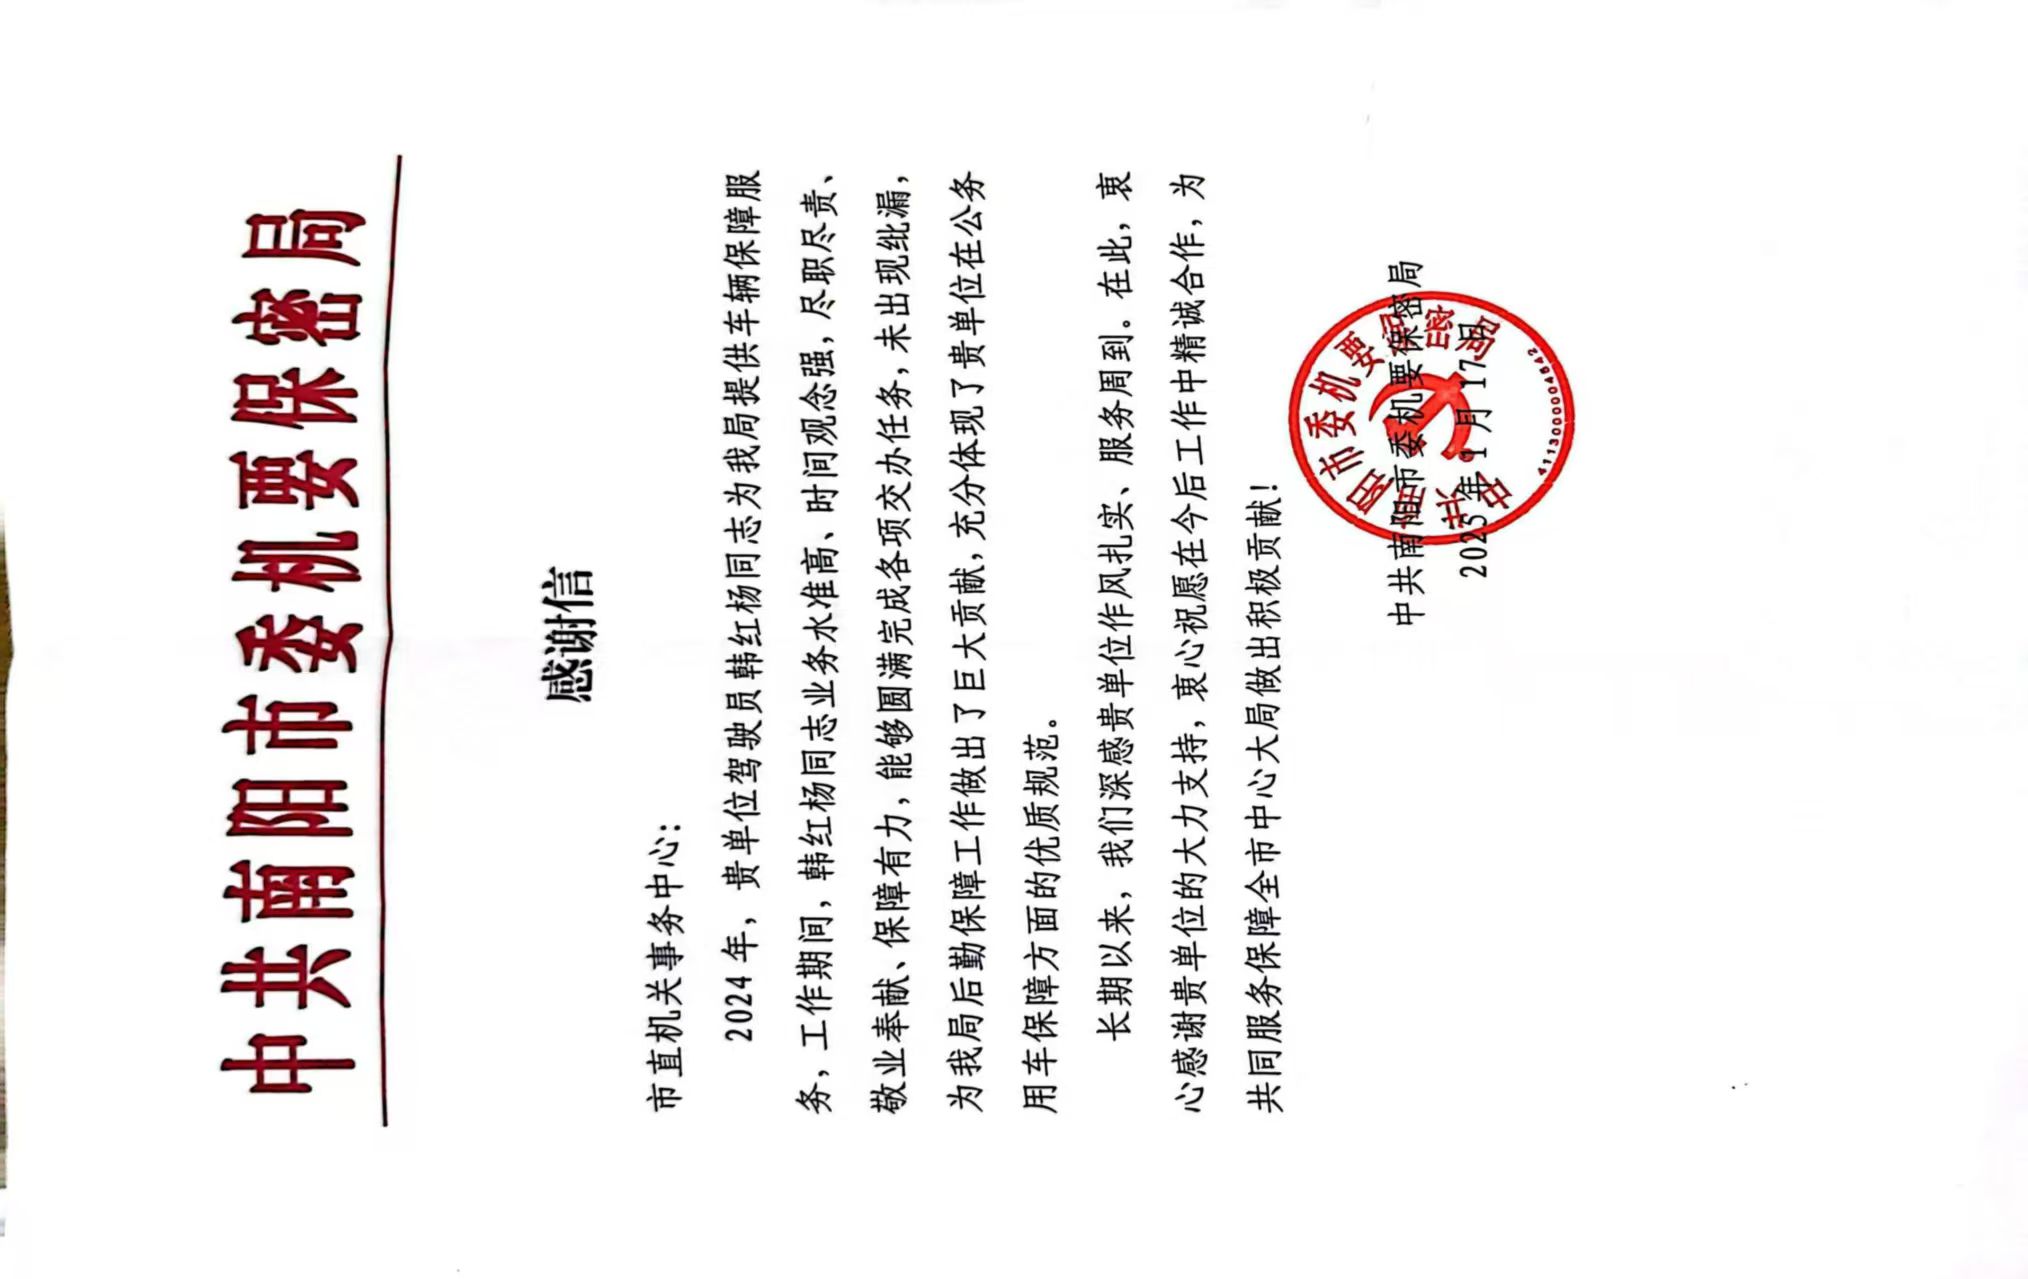 中共南阳市委机要保密局
感谢信
市直机关事务中心：
2024年，贵单位驾驶员韩红杨同志为我局提供车辆保障服
务，工作期间，韩红杨同志业务水准高、时间观念强，尽职尽责、
敬业奉献、保障有力，能够圆满完成各项交办任务，未出现纰漏，
为我局后勤保障工作做出了巨大贡献，充分体现了贵单位在公务
用车保障方面的优质规范。
长期以来，我们深感贵单位作风扎实、服务周到。在此，衷
心感谢贵单位的大力支持，衷心祝愿在今后工作中精诚合作，为
共同服务保障全市中心大局做出积极贡献！
中共南阳市委机要保密局
2025年1月17日
中共南阳市委机要保密局
4113000004642